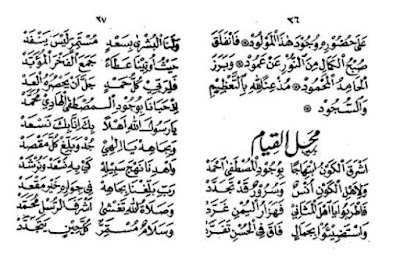 ٢٦
عَلَى حُضُورِهِ وَوُجُودِ هٰذَا الْمَوْلُودِ ۞ فَانْفَلَقَ
صُبْحُ الْكَمَالِ مِنَ النُّورِ عَنْ عَمُودٍ ۞ وَبَرَزَ
الْحَامِدُ الْمَحْمُودُ ۞ مُذْعِنًا لِلّٰهِ بِالتَّعْظِيمِ
وَالسُّجُودِ ۞
محل القيام
اَشْرَقَ الْكَوْنُ ابْتِهَاجًا بِوُجُودِ الْمُصْطَفَى احْمَد
وَلِاَهْلِ الْكَوْنِ اُنْسٌ وَسُرُورٌ قَدْ تَجَدَّدْ
فَاطْرَبُوا يَا اَهْلَ الْمَثَانِي فَهَزَارُ الْيُمْنِ غَرَّدْ
وَاسْتَضِيئُوا بِجَمَالٍ فَاقَ فِي الْحُسْنِ تَفَرَّدْ
٢٧
وَلَنَا الْبُشْرَى بِسَعْدٍ مُسْتَمِرٍّ لَيْسَ يَنْفَدْ
حَيْثُ اُوتِينَا عَطَاءً جَمَعَ الْفَخْرَ الْمُؤَبَّدْ
فَلِرَبِّي كُلُّ حَمْدٍ جَلَّ اَنْ يَحْصُرَهُ الْعَد
اِذْ حَبَانَا بِوُجُودِ الْمُصْطَفَى الْهَادِي مُحَمَّدْ
يَا رَسُولَ اللهِ اَهْلًا بِكَ اِنَّا بِكَ نُسْعَدْ
وَبِجَاهِهْ يَا اِلٰهِي جُدْ وَبَلِّغْ كُلَّ مَقْصَدْ
وَاهْدِنَا نَهْجَ سَبِيلِهْ كَيْ بِهِ نُسْعَدْ وَنُرْشَدْ
رَبِّ بَلِّغْنَا بِجَاهِهْ فِي جِوَارِهْ خَيْرَ مَقْعَدْ
وَصَلَاةُ اللهِ تَغْشَى اَشْرَفَ الرُّسْلِ مُحَمَّدْ
وَسَلَامٌ مُسْتَمِرٌّ كُلَّ حِينٍ يَتَجَدَّدْ